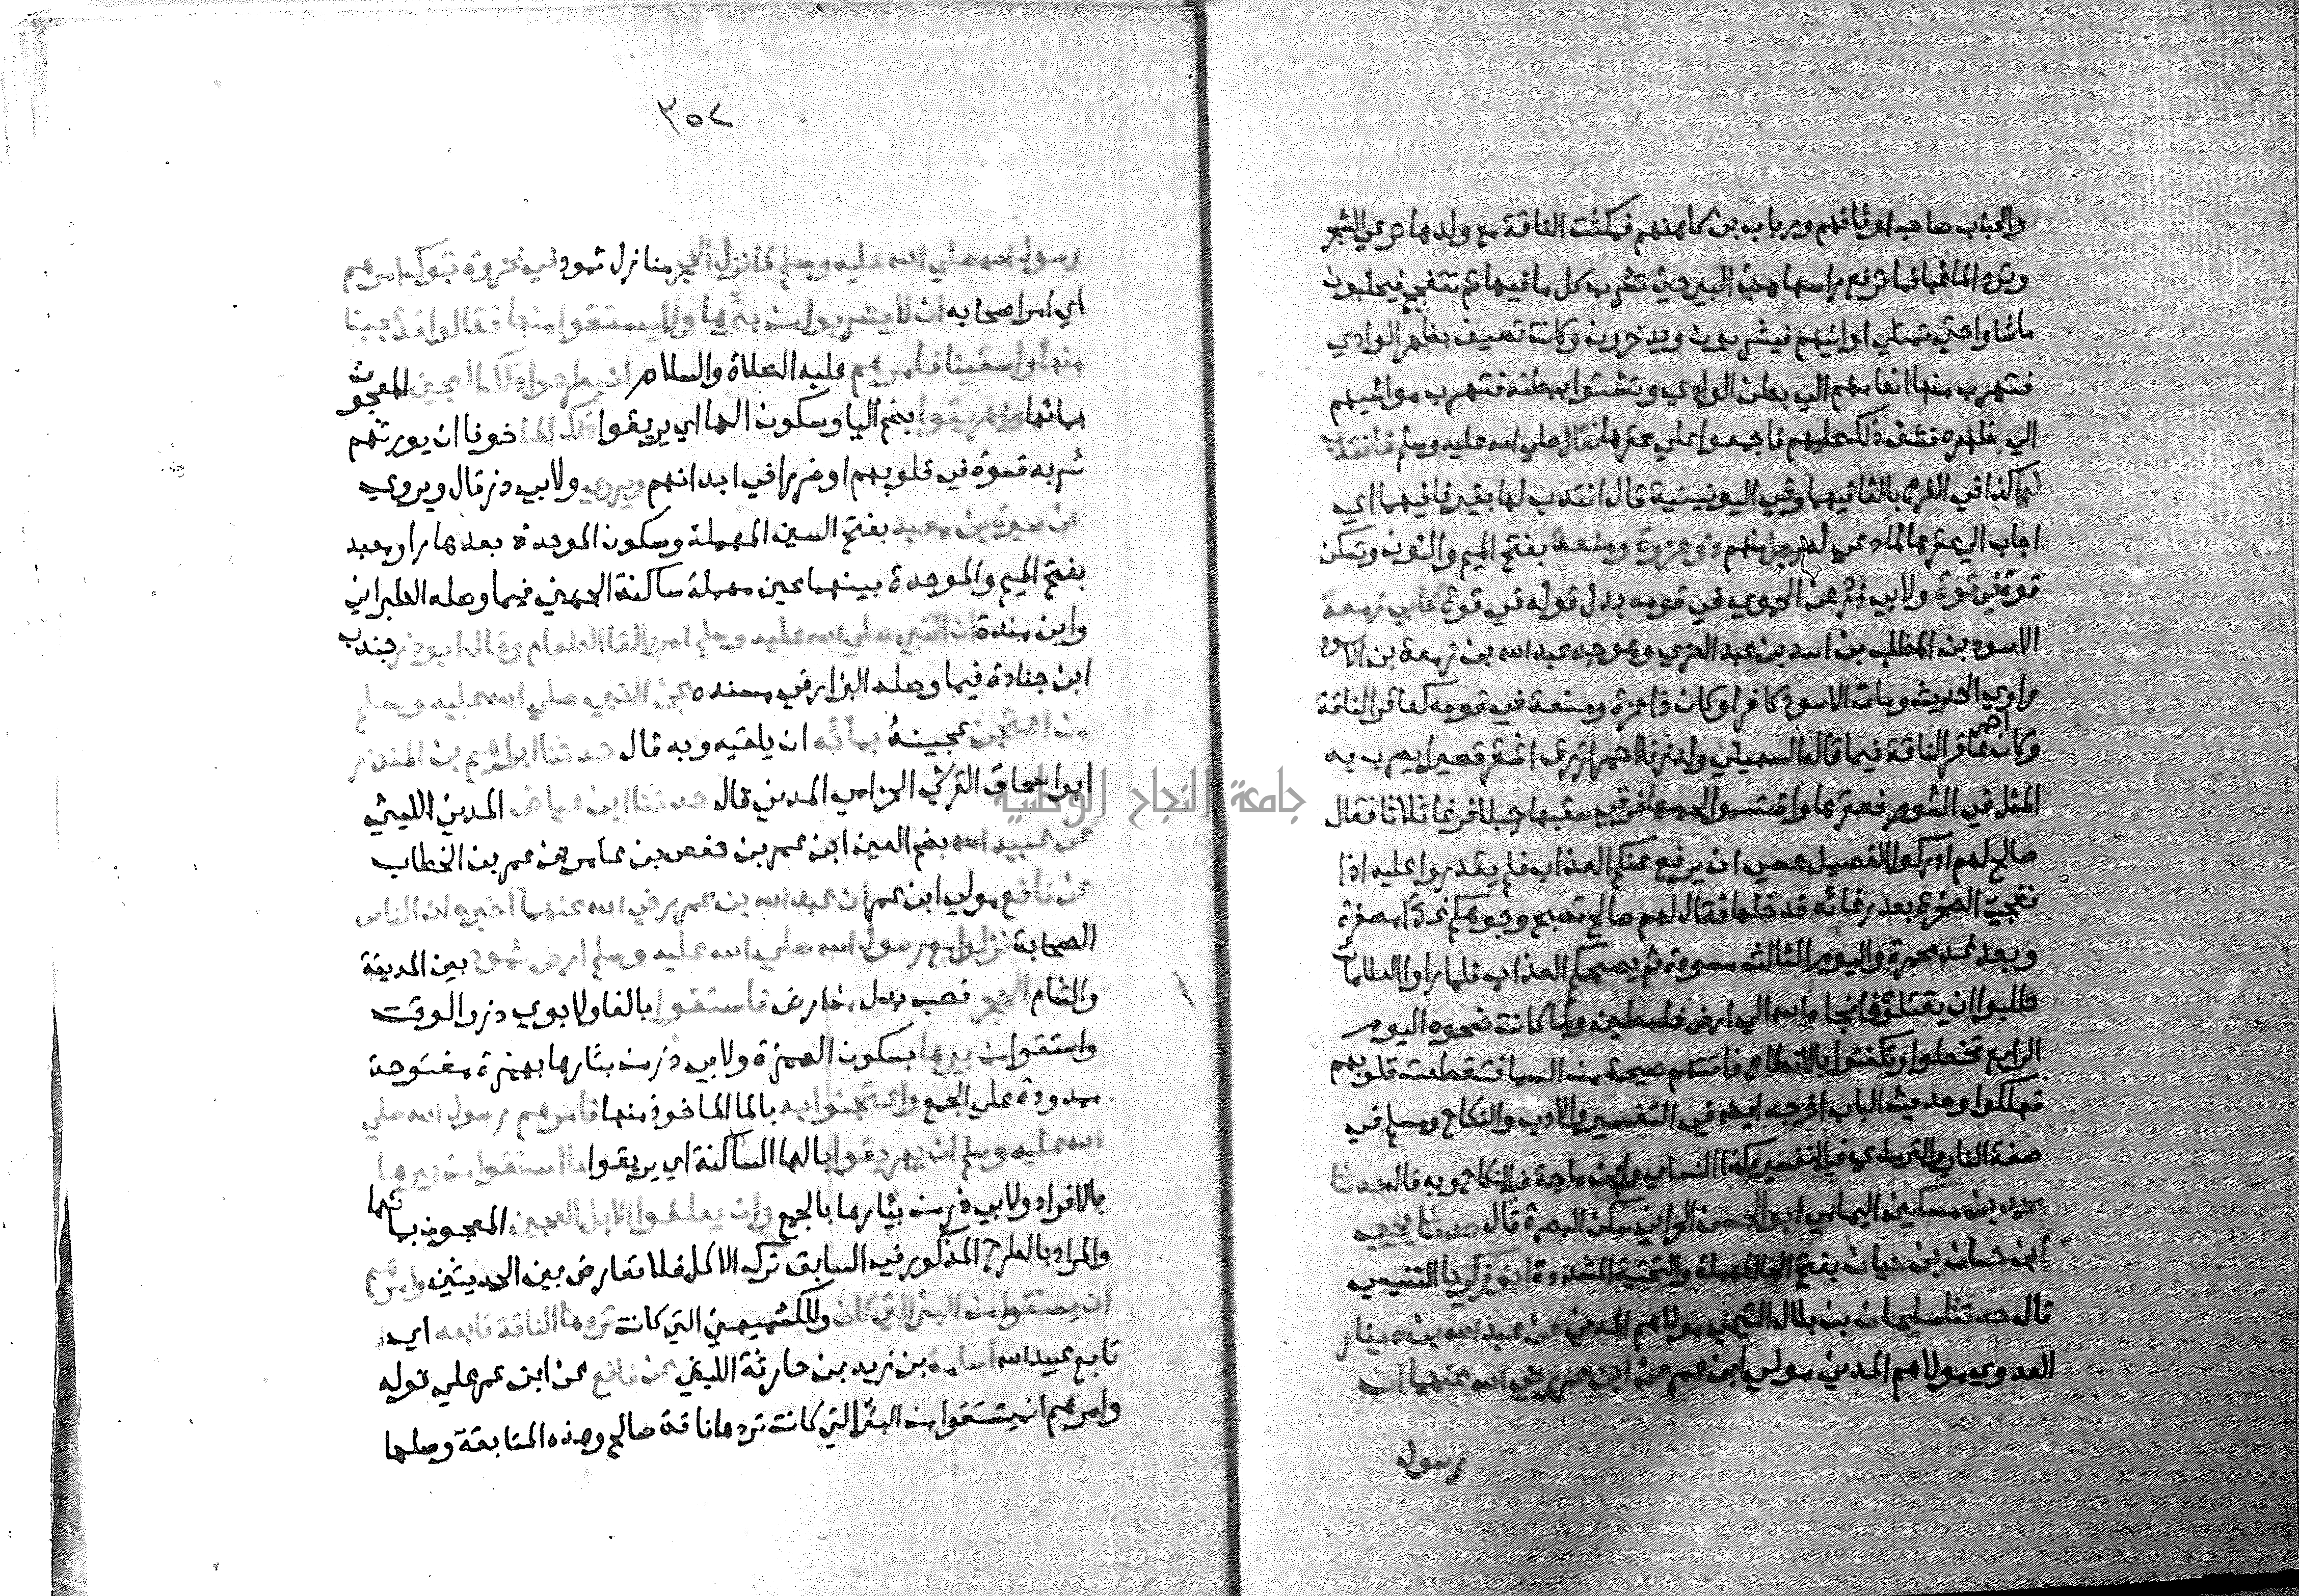 والحباب صاحب اوثانهم ورباب بن كاهنهم فمكثت الناقة مع ولدها ترعي الشجر
وترد الما غبا فما ترفع راسها من البير حتي تشرب كل ما فيها ثم تتفجج فيحلبون
ماشاوا حتي تمتلي اوانيهم فيشربون ويدخرون وكانت تصيف بظهر الوادي
فتهرب منها انعامهم الي بطن الوادي وتشتوا ببطنه فتهرب مواشيهم
الي ظهره فشق ذلك عليهم فاجمعوا علي عقرها فقال صلي الله عليه وسلم فانتدب
لها كذا في الفرع بالفا فيهما وفي اليونينية قال انتدب لها بغير فا فيهما اي
اجاب الي عقرها لما دعي له رجل منهم ذو عزوة ومنعة بفتح الميم والنون وتسكن
قوة في قوة ولابي ذر عن الحموي في قومه بدل قوله في قوة كابي زمعة
الاسود بن المطلب بن اسد بن عبد العزي وهو جد عبد الله بن زمعة بن الاسود
راوي الحديث ومات الاسود كافرا وكان ذا عزة ومنعة في قومه كعاقر الناقة
وكان عاقر الناقة فيما قاله السهيلي ولد زنا احمر ازرق اشقر قصيرا يضرب به
المثل في الشوم فعقرها واقتسموا لحمها فرقي سقبها جبلا فرغا ثلاثا فقال
صالح لهم ادركوا الفصيل عسي ان يرفع عنكم العذاب فلم يقدروا عليه اذا
نفجت الصخرة بعد رغائه فدخلها فقال لهم صالح تصبح وجوهكم غدا مصفرة
وبعد غد محمرة واليوم الثالث مسودة ثم يصبحكم العذاب فلما راوا العلامات
طلبوا ان يقتلوه فانجاه الله الي ارض فلسطين ولما كانت ضحوه اليوم
الرابع تحنطوا وتكفنوا بالانطاع فاتتهم صيحة من السما فتقطعت قلوبهم
فهلكوا وحديث الباب اخرجه ايضا في التفسير والادب والنكاح ومسلم في
صفة النار والترمذي في التفسير وكذا النساي وابن ماجة في النكاح وبه قال حدثنا
محمد بن مسكين اليمامي ابو الحسن الحراني سكن البصرة قال حدثنا يحيي
ابن حسان بن حيان بفتح الحا المهملة والتحتية المشددة ابو زكريا التنيسي
قال حدثنا سليمان بن بلال التيمي مولاهم المدني عن عبد الله بن دينار
العدوي مولاهم المدني مولي ابن عمر عن ابن عمر رضي الله عنهما ان
رسول
٣٥٢
رسول الله صلي الله عليه وسلم لما نزل الحجر منازل ثمود في غزوة تبوك امرهم
اي امر اصحابه ان لا يشربوا من بئرها ولا يستقوا منها فقالوا قد عجنا
منها واستقينا فامرهم عليه الصلاة والسلام ان يطرحوا ذلك العجين المعجون
بمائها ويهريقوا بضم اليا وسكون الها اي يريقوا ذلك الما خوفا ان يورثهم
شربه قسوة في قلوبهم او ضررا في ابدانهم ويروي ولابي ذر قال ويروي
عن سبرة بن معبد بفتح السين المهملة وسكون الموحدة بعدها را ومعبد
بفتح الميم والموحدة بينهما عين مهملة ساكنة الجهني فيما وصله الطبراني
وابن مندة ان النبي صلي الله عليه وسلم امر بالقا الطعام وقال ابو ذر جندب
ابن جنادة فيما وصله البزار في مسنده عن النبي صلي الله عليه وسلم
من اعتجن عجينه بمائه ان يلقيه وبه قال حدثنا ابراهيم بن المنذر
ابو اسحاق القرشي الحزامي المدني قال حدثنا انس بن عياض المدني الليثي
عن عبيد الله بضم العين ابن عمر بن حفص بن عاصم بن عمر بن الخطاب
عن نافع مولي ابن عمر ان عبد الله بن عمر رضي الله عنهما اخبره ان الناس
الصحابة نزلوا مع رسول الله صلي الله عليه وسلم ارض ثمود بين المدينة
والشام الحجر نصب بدل من ارض فاستقوا بالفا ولابوي ذر والوقت
واستقوا من بيرها بسكون الهمزة ولابي ذر من بئارها بهمزة مفتوحة
ممدودة علي الجمع واعتجنوا به بالما الماخوذ منها فامرهم رسول الله صلي
الله عليه وسلم ان يهريقوا بالها الساكنة اي يريقوا ما استقوا من بيرها
بالافراد ولابي ذر من بئارها بالجمع وان يعلفوا الابل العجين المعجون بمائها
والمراد بالطرح المذكور في السابق ترك الاكل فلا تعارض بين الحديثين وامرهم
ان يستقوا من البئر التي كان وللكشميهني التي كانت تردها الناقة تابعه اي
تابع عبيد الله اسامة بن زيد بن حارثة الليثي عن نافع عن ابن عمر علي قوله
وامرهم ان يستقوا من البئر التي كانت تردها ناقة صالح وهذه المتابعة وصلها
جامعة النجاح الوطنية